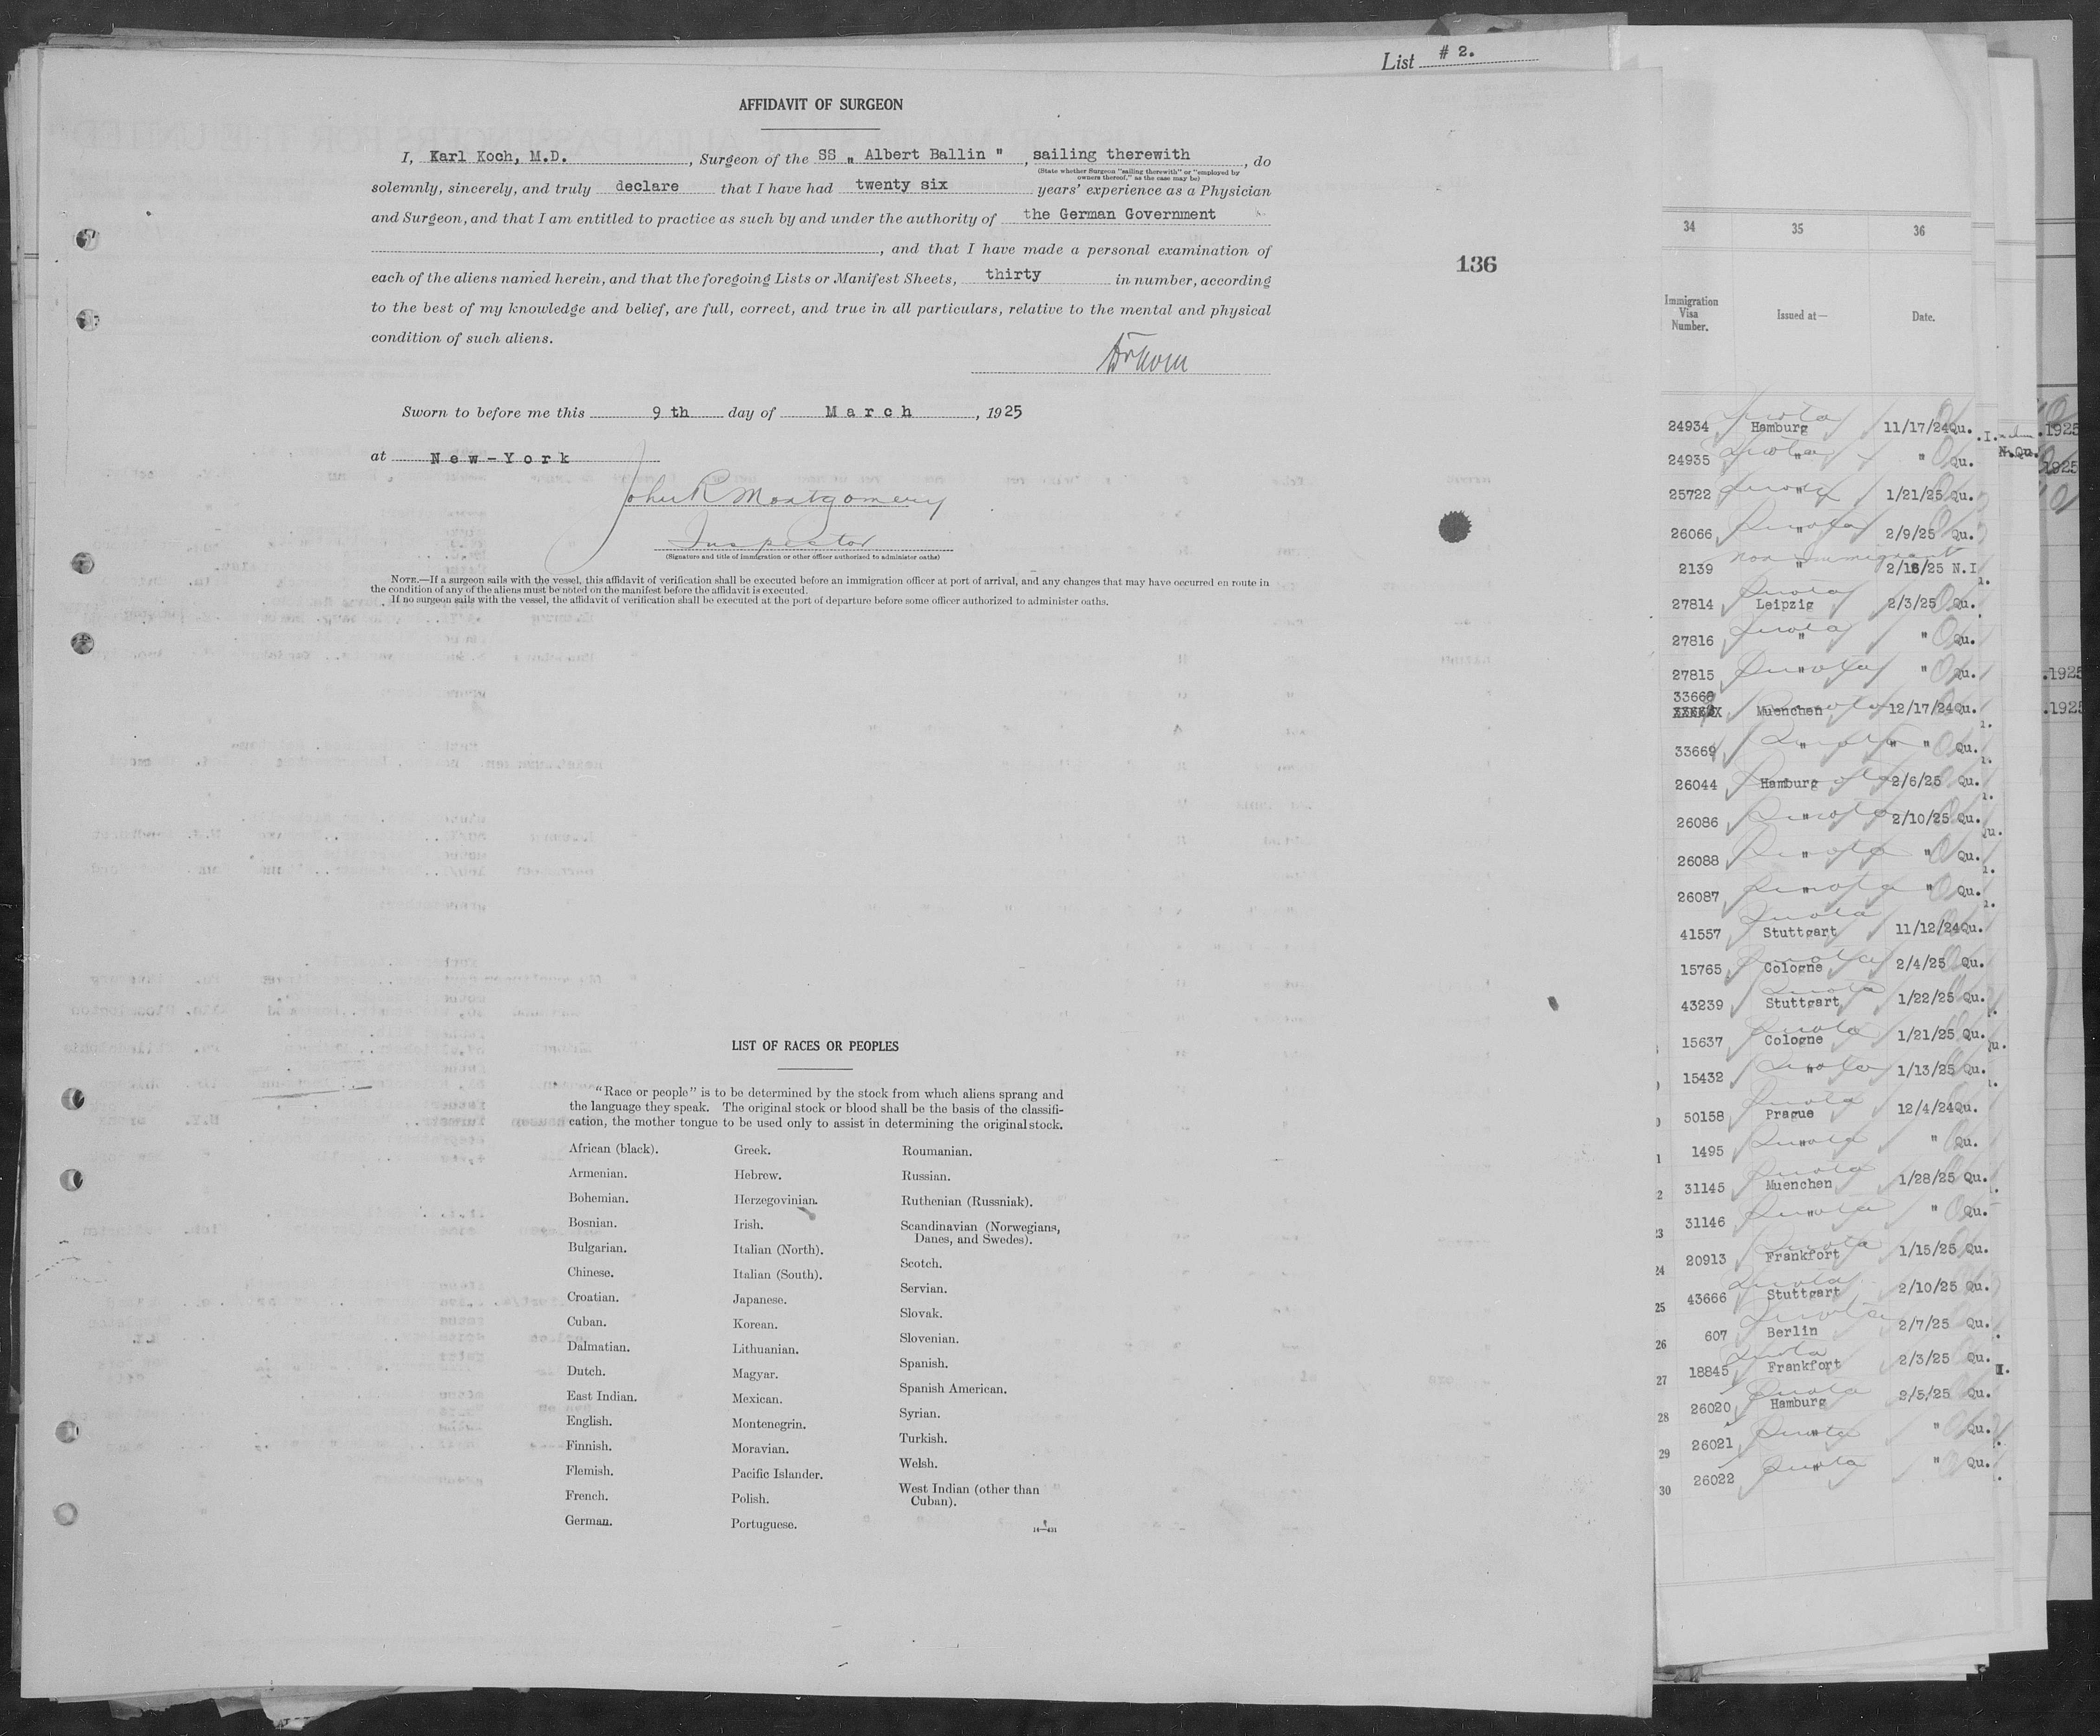 List # 2.
AFFIDAVIT OF SURGEON
I, Karl Koch, M.D. , Surgeon of the SS „ Albert Ballin " , sailing therewith , do
(State whether Surgeon "sailing therewith" or "employed by
owners thereof," as the case may be)
solemnly, sincerely, and truly declare that I have had twenty six years' experience as a Physician
and Surgeon, and that I am entitled to practice as such by and under the authority of the German Government
, and that I have made a personal examination of
each of the aliens named herein, and that the foregoing Lists or Manifest Sheets, thirty in number, according
to the best of my knowledge and belief, are full, correct, and true in all particulars, relative to the mental and physical
condition of such aliens.
136
Sworn to before me this 9 th day of March , 1925
at New-York
John R Montgomery
Inspector
(Signature and title of immigration or other officer authorized to administer oaths)
NOTE.—If a surgeon sails with the vessel, this affidavit of verification shall be executed before an immigration officer at port of arrival, and any changes that may have occurred en route in
the condition of any of the aliens must be noted on the manifest before the affidavit is executed.
If no surgeon sails with the vessel, the affidavit of verification shall be executed at the port of departure before some officer authorized to administer oaths.
LIST OF RACES OR PEOPLES
"Race or people" is to be determined by the stock from which aliens sprang and
the language they speak. The original stock or blood shall be the basis of the classifi-
cation, the mother tongue to be used only to assist in determining the original stock.
African (black).
Armenian.
Bohemian.
Bosnian.
Bulgarian.
Chinese.
Croatian.
Cuban.
Dalmatian.
Dutch.
East Indian.
English.
Finnish.
Flemish.
French.
German.
Greek.
Hebrew.
Herzegovinian.
Irish.
Italian (North).
Italian (South).
Japanese.
Korean.
Lithuanian.
Magyar.
Mexican.
Montenegrin.
Moravian.
Pacific Islander.
Polish.
Portuguese.
Roumanian.
Russian.
Ruthenian (Russniak).
Scandinavian (Norwegians,
Danes, and Swedes).
Scotch.
Servian.
Slovak.
Slovenian.
Spanish.
Spanish American.
Syrian.
Turkish.
Welsh.
West Indian (other than
Cuban).
34 35 36
Immigration
Visa
Number.
Issued at—
Date.
24934 Quota Hamburg 11/17/24 Qu.
24935 Quota " " Qu.
25722 Quota " 1/21/25 Qu.
26066 Quota " 2/9/25 Qu.
2139 non immigrant " 2/16/25 N.I
27814 Quota Leipzig 2/3/25 Qu.
27816 Quota " " Qu.
27815 Quota " " Qu.
33668
Muenchen Quota 12/17/24 Qu.
33669 Quota " " Qu.
26044 Hamburg Quota 2/6/25 Qu.
26086 Quota " 2/10/25 Qu.
26088 Quota " " Qu.
26087 Quota " " Qu.
41557 Quota Stuttgart 11/12/24 Qu.
15765 Quota Cologne 2/4/25 Qu.
43239 Quota Stuttgart 1/22/25 Qu.
15637 Quota Cologne 1/21/25 Qu.
15432 Quota " 1/13/25 Qu.
50158 Quota Prague 12/4/24 Qu.
1495 Quota " " Qu.
31145 Quota Muenchen 1/28/25 Qu.
31146 Quota " " Qu.
20913 Quota Frankfort 1/15/25 Qu.
24
43666 Quota Stuttgart 2/10/25 Qu.
25
607 Quota Berlin 2/7/25 Qu.
26
18845 Quota Frankfort 2/3/25 Qu.
27
26020 Quota Hamburg 2/5/25 Qu.
28
26021 Quota " " Qu.
29
26022 Quota " " Qu.
30
.1925
N.Qu.
1925
.1925
.1925